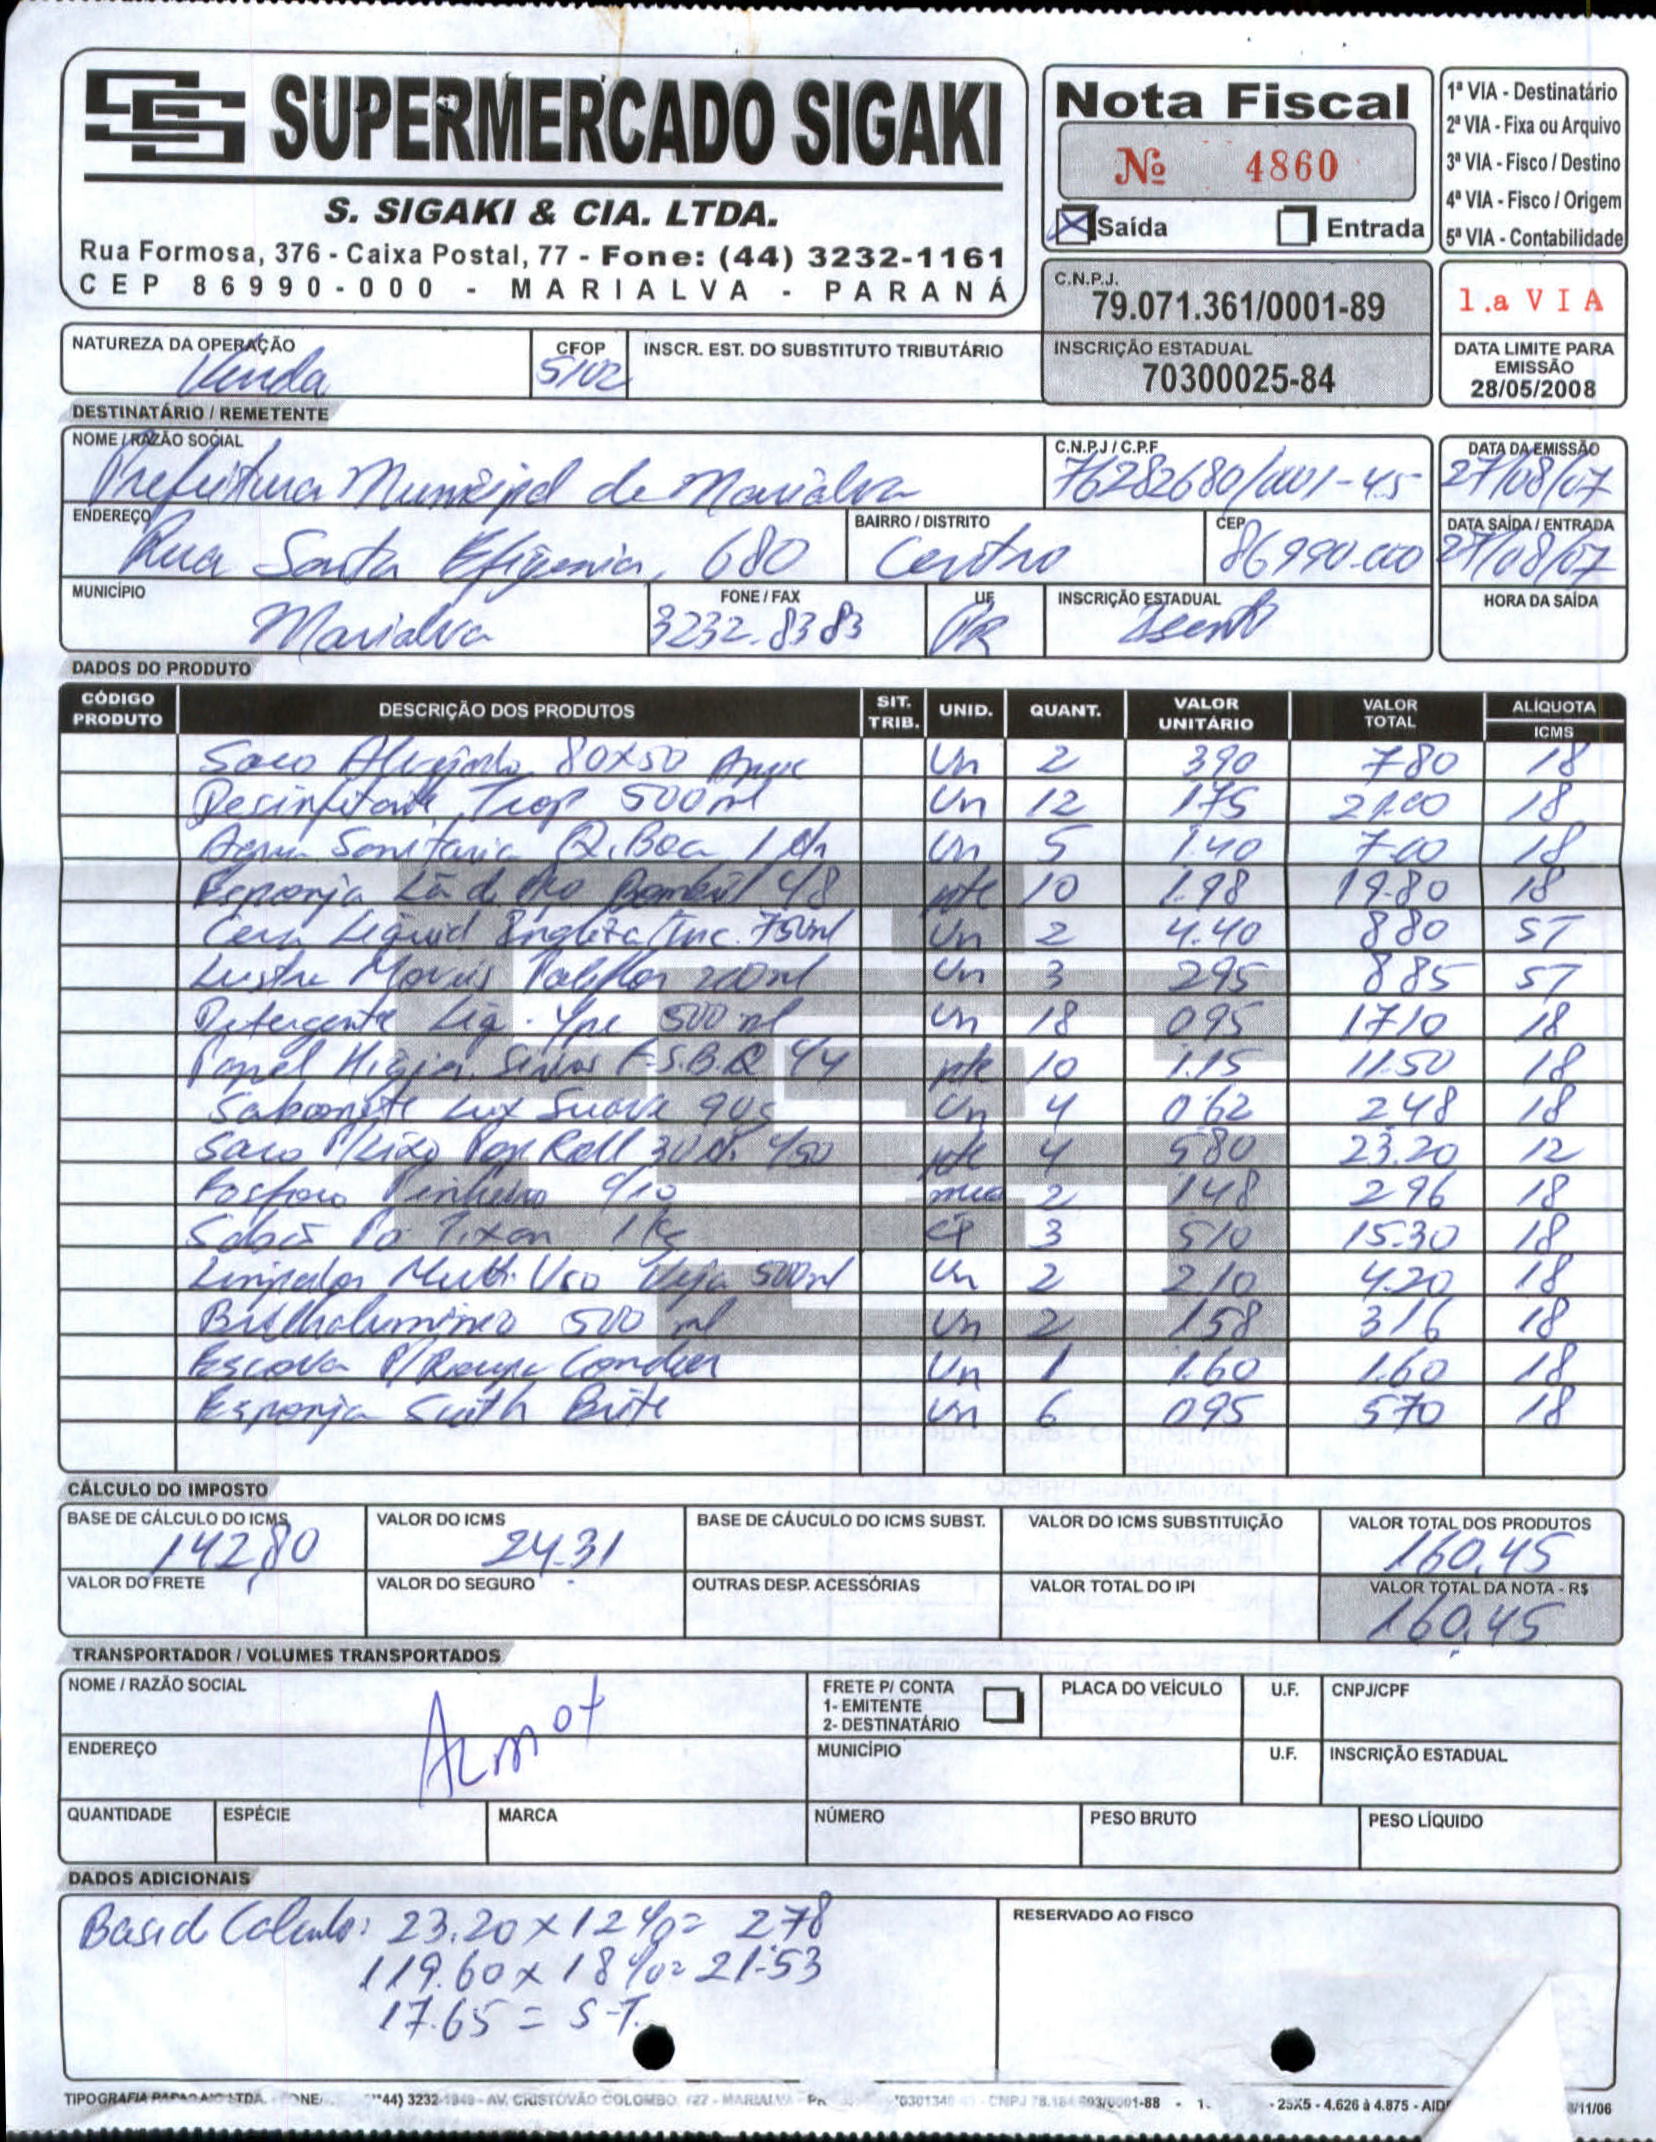 SUPERMERCADO SIGAKI
S. SIGAKI & CIA. LTDA.
Rua Formosa, 376 - Caixa Postal, 77 - Fone: (44) 3232-1161
CEP 86990-000 - MARIALVA - PARANÁ
Nota Fiscal
Nº 4860
Saída Entrada
1ª VIA - Destinatário
2ª VIA - Fixa ou Arquivo
3ª VIA - Fisco / Destino
4ª VIA - Fisco / Origem
5ª VIA - Contabilidade
C.N.P.J.
79.071.361/0001-89
1.a VIA
NATUREZA DA OPERAÇÃO
Venda
CFOP
5102
INSCR. EST. DO SUBSTITUTO TRIBUTÁRIO
INSCRIÇÃO ESTADUAL
70300025-84
DATA LIMITE PARA
EMISSÃO
28/05/2008
DESTINATÁRIO / REMETENTE
NOME / RAZÃO SOCIAL
Prefeitura Municipal de Marialva
C.N.P.J / C.P.F
76282680/0001-45
DATA DA EMISSÃO
27/08/07
ENDEREÇO
Rua Santa Efigenia, 680
BAIRRO / DISTRITO
Centro
CEP
86990-000
DATA SAÍDA / ENTRADA
27/08/07
MUNICÍPIO
Marialva
FONE / FAX
3232-8383
UF
PR
INSCRIÇÃO ESTADUAL
Isento
HORA DA SAÍDA
DADOS DO PRODUTO
CÓDIGO PRODUTO DESCRIÇÃO DOS PRODUTOS SIT. TRIB. UNID. QUANT. VALOR UNITÁRIO VALOR TOTAL ALÍQUOTA ICMS
Saco Alvejado 80x50 Un 2 390 780 18
Desinfetante Trop 500ml Un 12 175 21.00 18
Agua Sanitaria Q.Boa 1 Un 5 1.40 7.00 18
Esponja Lã de Aço Bombril c/8 pte 10 1.98 19.80 18
Cera Liquid Ingleza Inc. 750ml Un 2 4.40 880 ST
Lustra Moveis Poliflor 200ml Un 3 295 885 ST
Detergente Liq. Ype 500 ml Un 18 095 1710 18
Papel Higien. F.S.B.R c/4 pte 10 1.15 11.50 18
Sabonete Lux Suave 90g Un 4 062 248 18
Saco P/Lixo Roll 30 c/50 pte 4 580 23.20 12
Fosforo Pinheiro c/10 2 148 296 18
Sabão Pó Tixan 1 Kg 3 510 15.30 18
Limpador Mult. Uso Veja 500ml Un 2 2.10 4.20 18
Brilhaluminio 500 ml Un 2 158 316 18
Escova P/Roupa Condor Un 1 1.60 1.60 18
Esponja Scoth Brite Un 6 095 570 18
CÁLCULO DO IMPOSTO
BASE DE CÁLCULO DO ICMS
142,80
VALOR DO ICMS
24.31
BASE DE CÁUCULO DO ICMS SUBST.
VALOR DO ICMS SUBSTITUIÇÃO
VALOR TOTAL DOS PRODUTOS
160,45
VALOR DO FRETE
VALOR DO SEGURO
OUTRAS DESP. ACESSÓRIAS
VALOR TOTAL DO IPI
VALOR TOTAL DA NOTA - R$
160,45
TRANSPORTADOR / VOLUMES TRANSPORTADOS
NOME / RAZÃO SOCIAL
FRETE P/ CONTA
1- EMITENTE
2- DESTINATÁRIO
PLACA DO VEÍCULO
U.F.
CNPJ/CPF
ENDEREÇO
MUNICÍPIO
U.F.
INSCRIÇÃO ESTADUAL
QUANTIDADE
ESPÉCIE
MARCA
NÚMERO
PESO BRUTO
PESO LÍQUIDO
DADOS ADICIONAIS
Base de Calculo: 23.20 x 12% = 278
119.60 x 18% = 21.53
17.65 = S-T.
RESERVADO AO FISCO
TIPOGRAFIA LTDA. 44) 3232-1949 - AV. CRISTÓVÃO COLOMBO, - MARIALVA - - 25X5 - 4.626 à 4.875 -